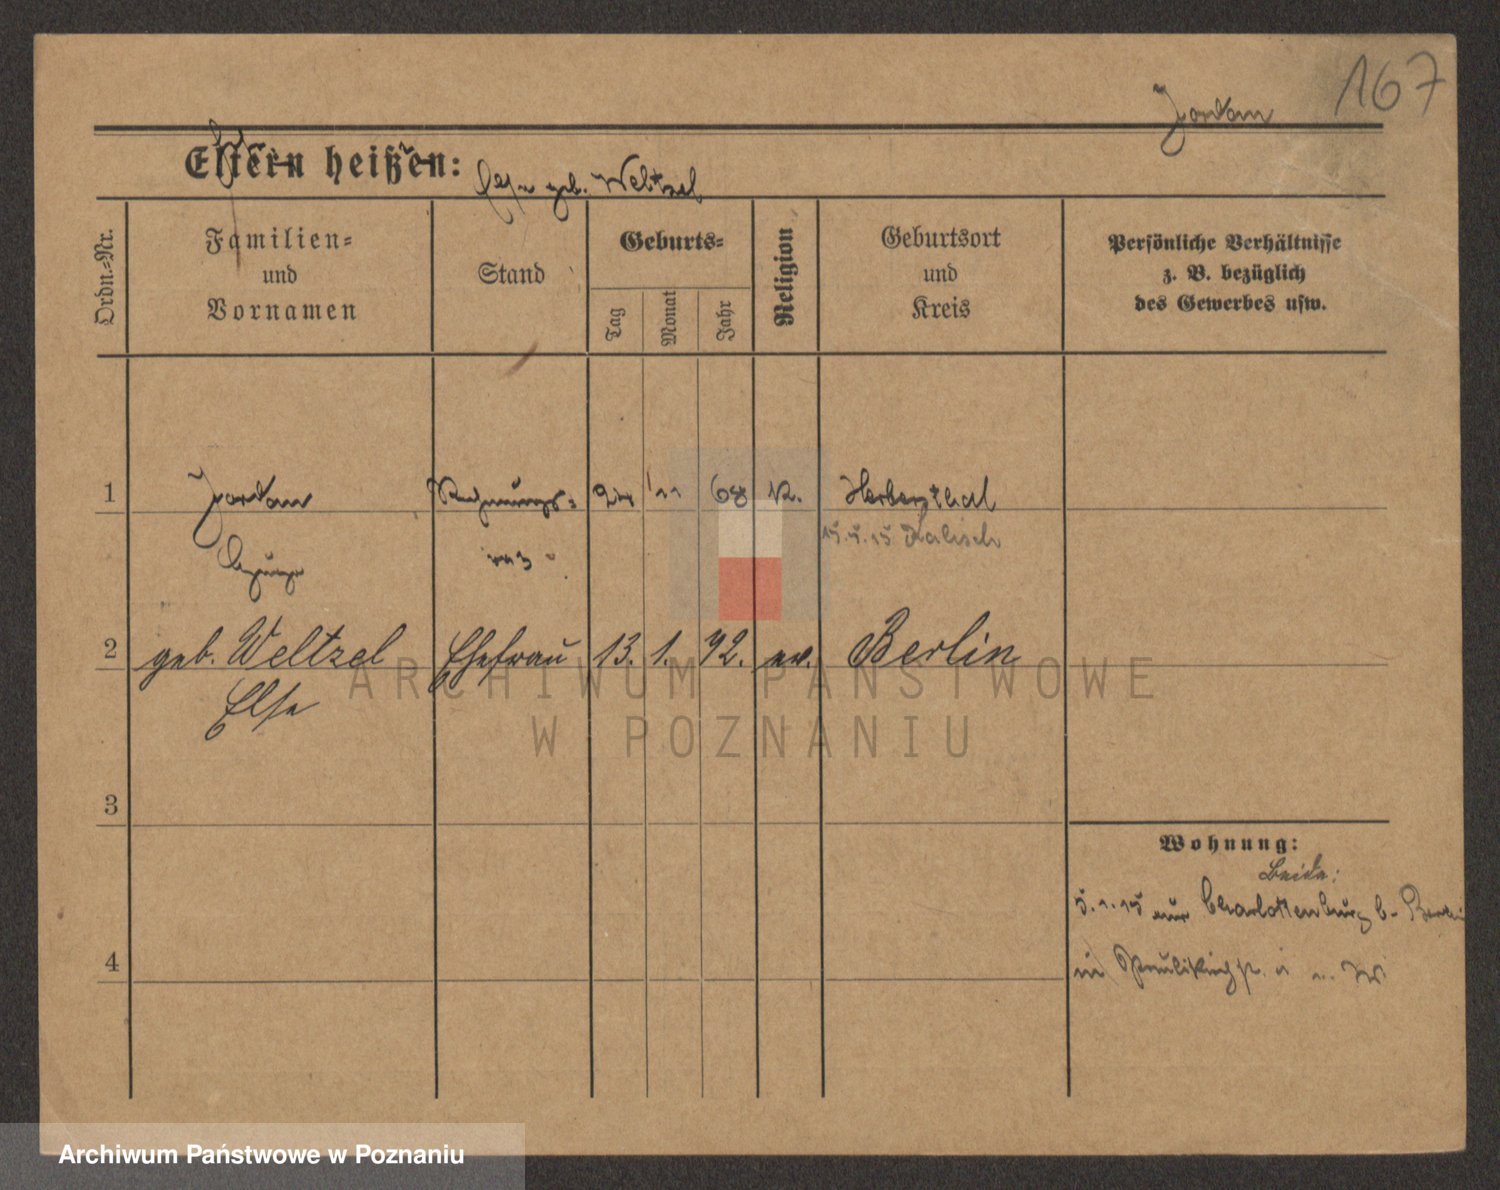 167
Jordan
Eltern heißen:
geb. Weltzel
Ordn.=Nr.
Familien=
und
Vornamen
Stand
Geburts=
Tag
Monat
Jahr
Religion
Geburtsort
und
Kreis
Persönliche Verhältnisse
z. B. bezüglich
des Gewerbes usw.
1 Jordan Rechnungs= 11 68 K. Herbesthal
15.5.15 Kalisch
2 geb. Weltzel Ehefrau 13. 1. 72. ev. Berlin
Else
3
Wohnung:
Beide:
5.1.15 aus Charlottenburg b. Berlin
4
in Paulikirchstr.
ARCHIWUM PAŃSTWOWE
W POZNANIU
Archiwum Państwowe w Poznaniu